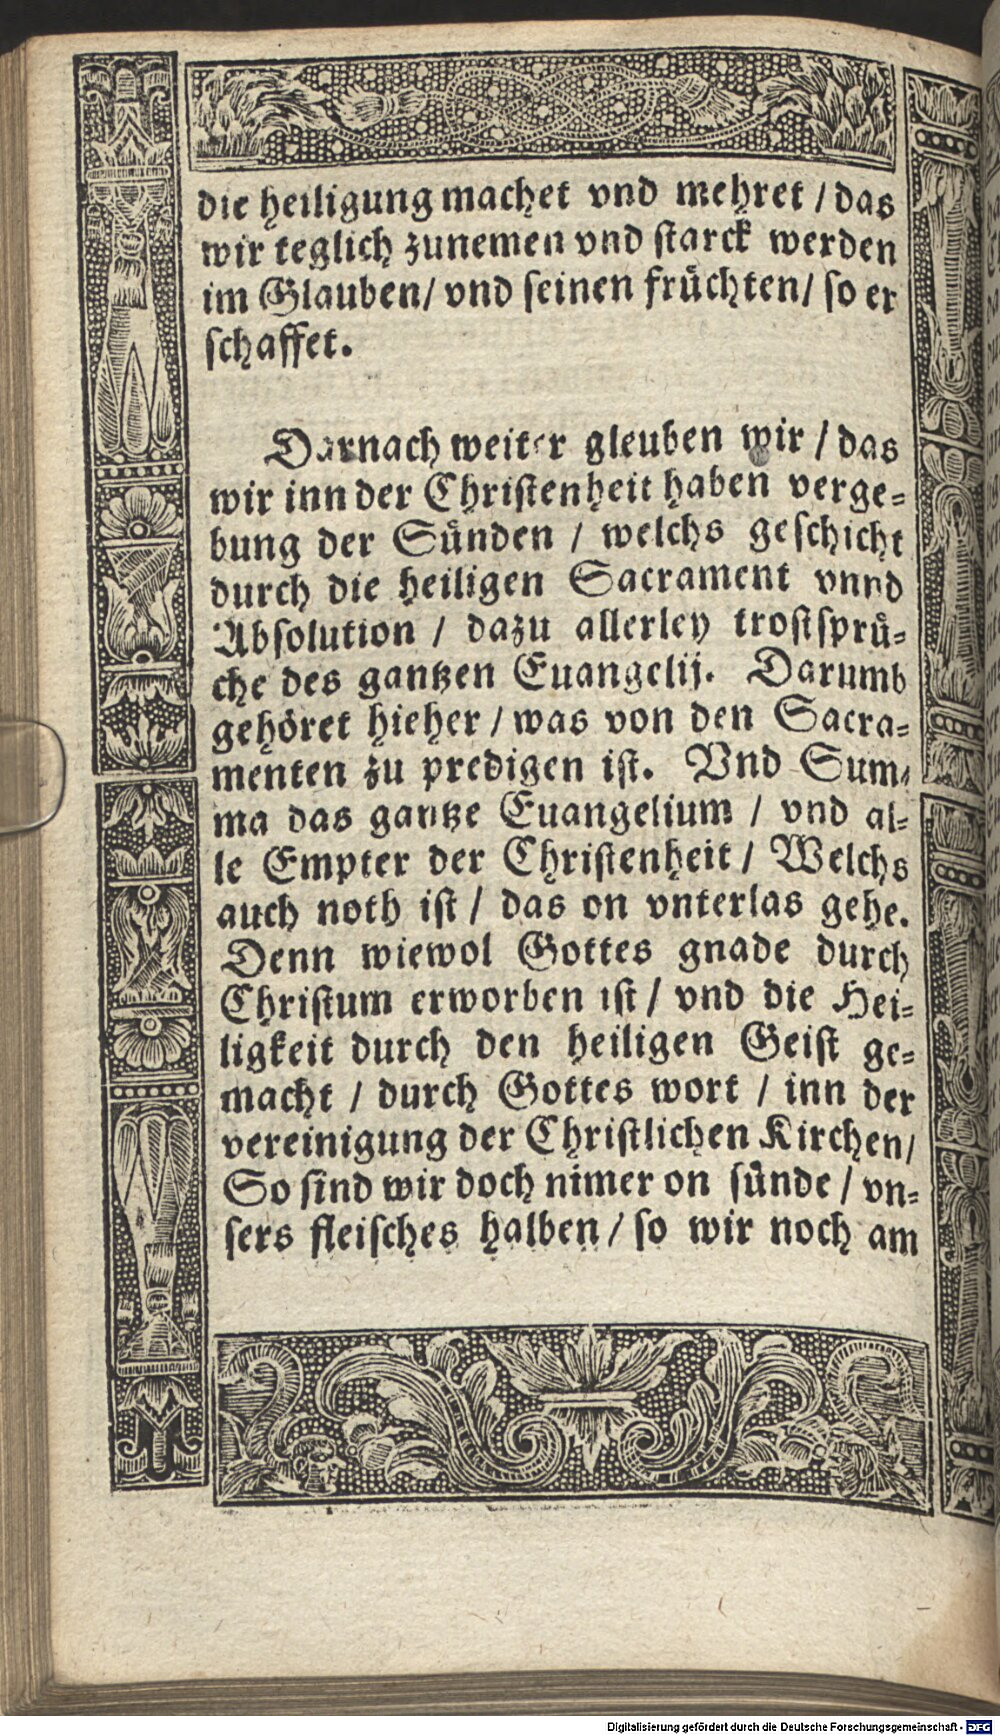 die heiligung machet vnd mehret / das
wir teglich zunemen vnd starck werden
im Glauben / vnd seinen früchten / so er
schaffet.
Darnach weiter gleuben wir / das
wir inn der Christenheit haben verge=
bung der Sünden / welchs geschicht
durch die heiligen Sacrament vnnd
Absolution / dazu allerley trostsprü=
che des gantzen Euangelij. Darumb
gehöret hieher / was von den Sacra=
menten zu predigen ist. Vnd Sum=
ma das gantze Euangelium / vnd al=
le Empter der Christenheit / Welchs
auch noth ist / das on vnterlas gehe.
Denn wiewol Gottes gnade durch
Christum erworben ist / vnd die Hei=
ligkeit durch den heiligen Geist ge=
macht / durch Gottes wort / inn der
vereinigung der Christlichen Kirchen /
So sind wir doch nimer on sünde / vn=
sers fleisches halben / so wir noch am
Digitalisierung gefördert durch die Deutsche Forschungsgemeinschaft - DFG